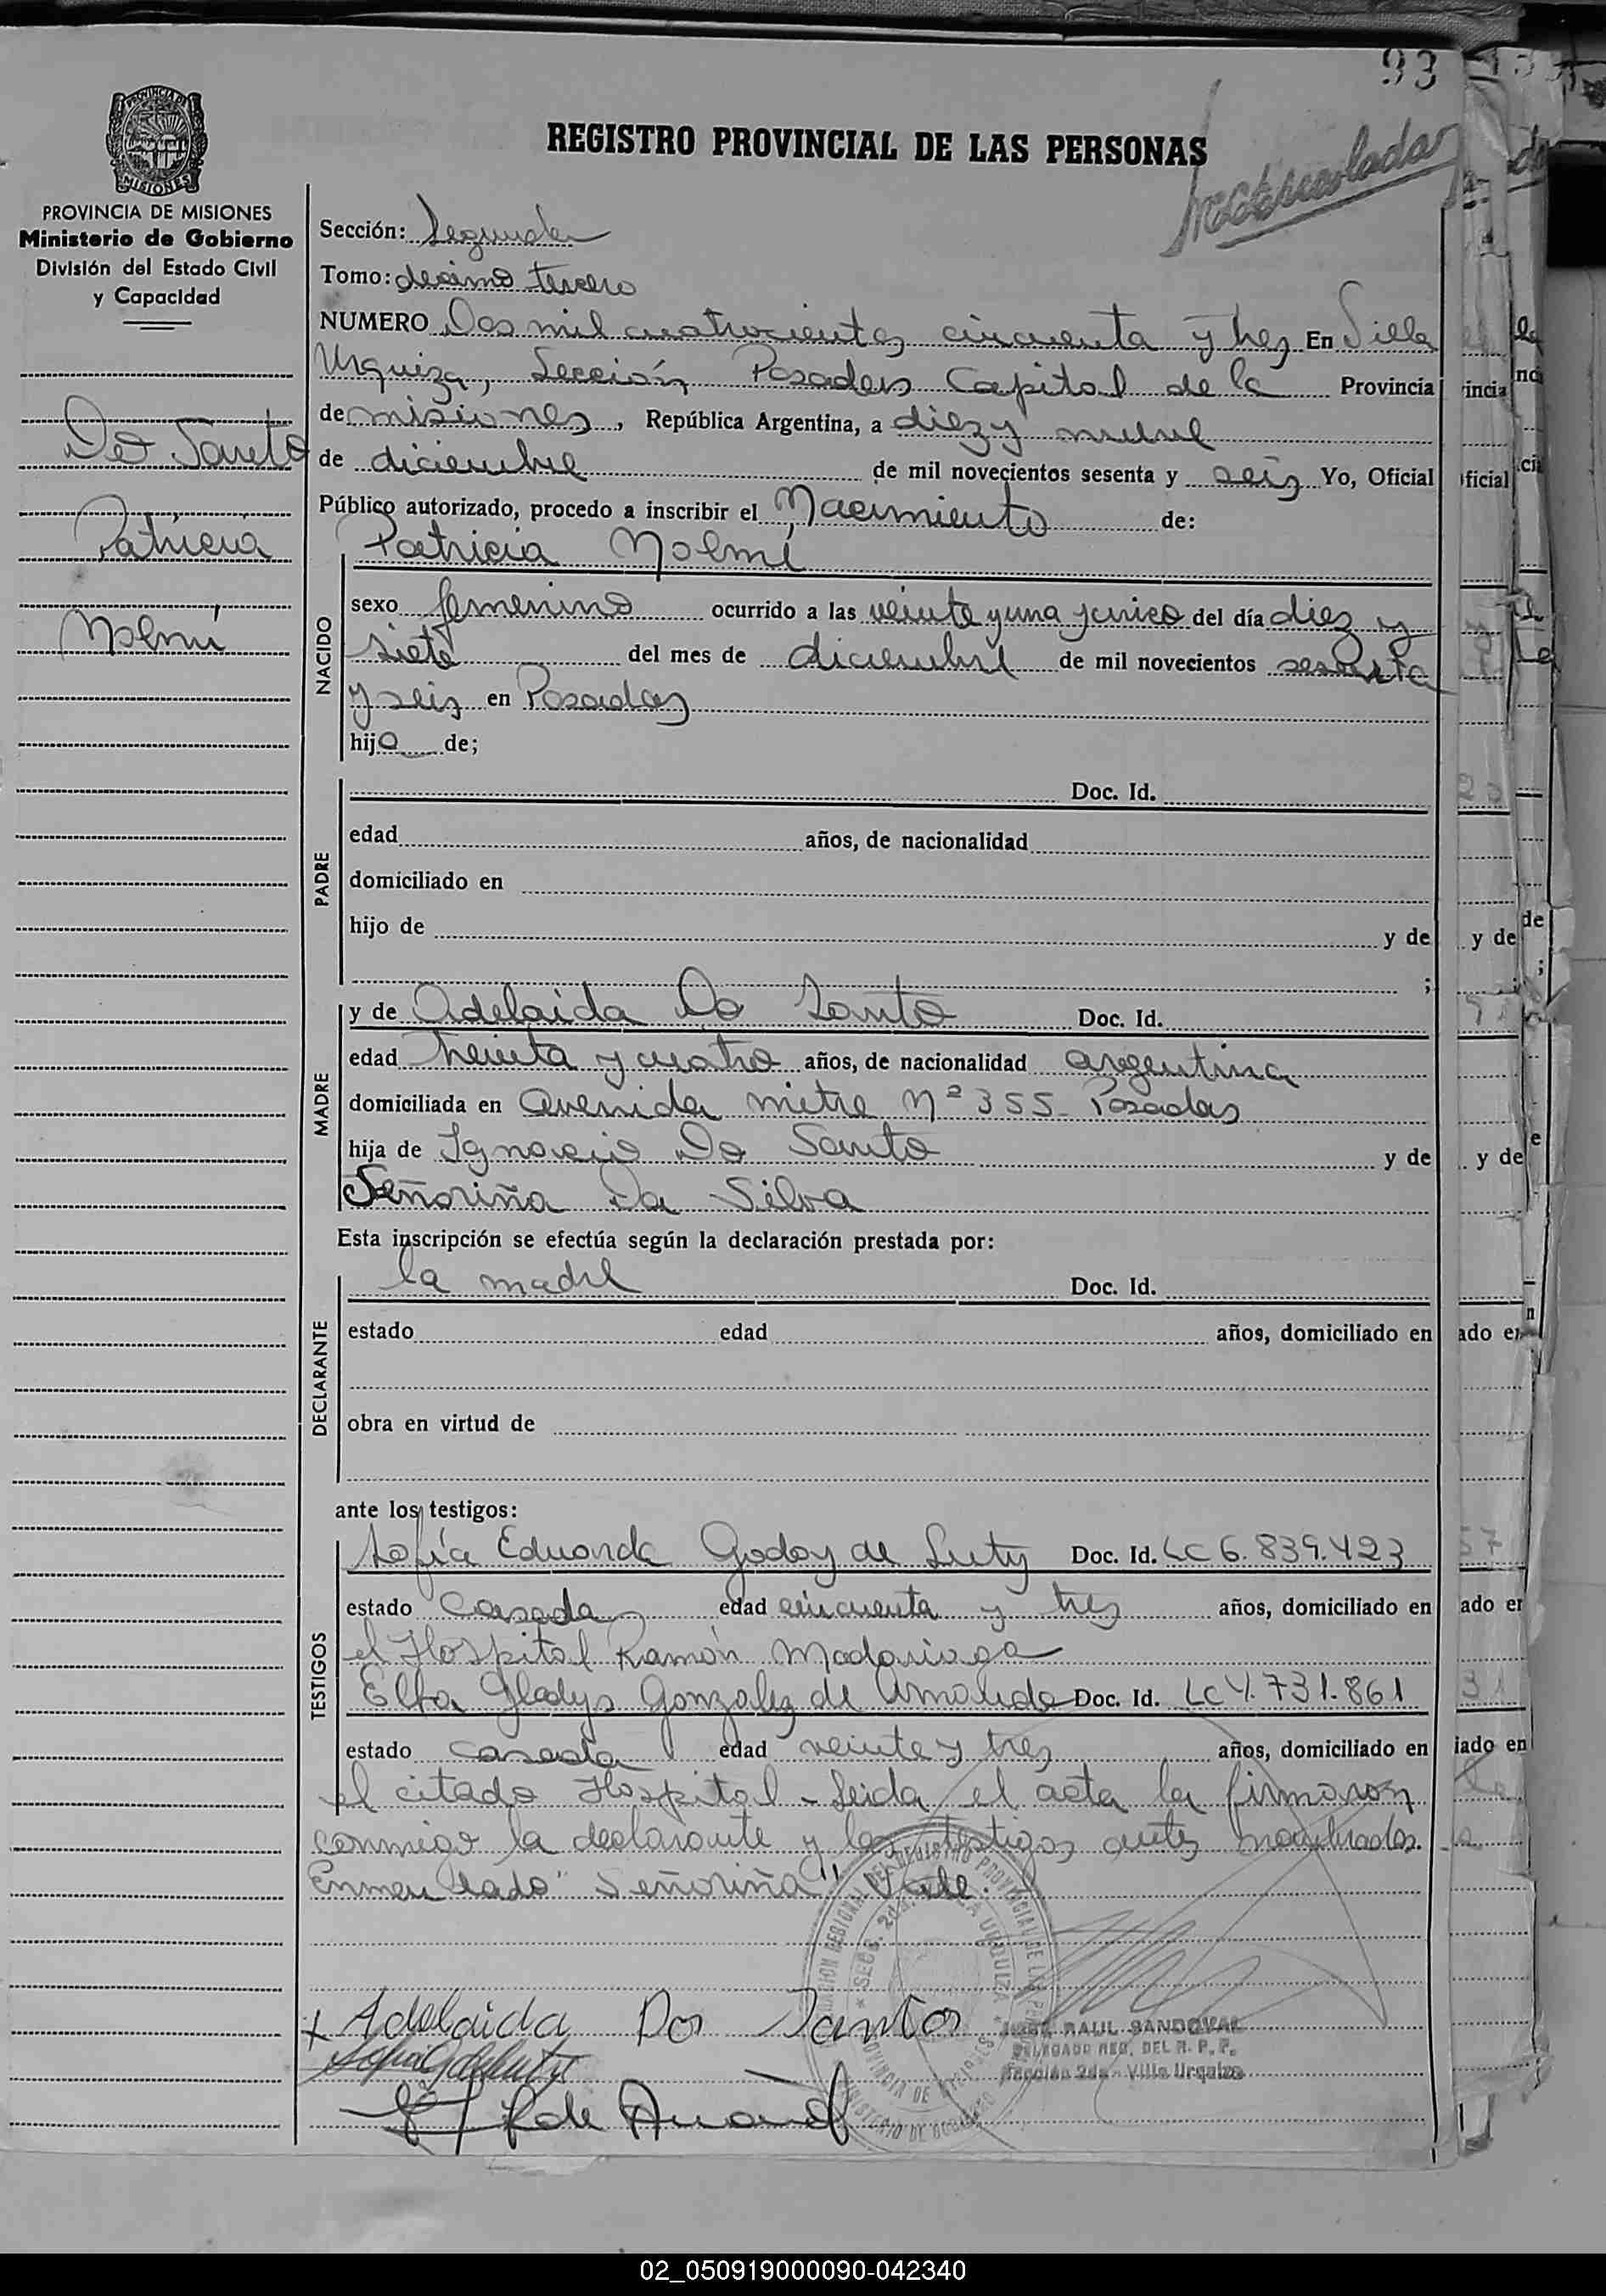 93
REGISTRO PROVINCIAL DE LAS PERSONAS
PROVINCIA DE MISIONES
Ministerio de Gobierno
División del Estado Civil
y Capacidad
Sección: Segunda
Tomo: decimo tercero
NUMERO Dos mil cuatrocientos cincuenta y tres En Villa
Urquiza, Sección Posadas Capital de la Provincia
de misiones, República Argentina, a diez y nueve
de diciembre de mil novecientos sesenta y seis Yo, Oficial
Público autorizado, procedo a inscribir el Nacimiento de:
Do Santo
Patricia
Noemí
NACIDO
Patricia Noemí
sexo femenino ocurrido a las veinte y una y cinco del día diez y
siete del mes de diciembre de mil novecientos sesenta
y seis en Posadas
hija de;
PADRE
Doc. Id.
edad años, de nacionalidad
domiciliado en
hijo de y de
;
MADRE
y de Adelaida Do Santo Doc. Id.
edad treinta y cuatro años, de nacionalidad argentina
domiciliada en Avenida mitre Nº 355 - Posadas
hija de Ignacio Do Santo y de
Señoriña Da Silva
Esta inscripción se efectúa según la declaración prestada por:
DECLARANTE
la madre Doc. Id.
estado edad años, domiciliado en
obra en virtud de
ante los testigos:
TESTIGOS
Sofía Eduarda Godoy de Doc. Id. LC 6.839.423
estado Casada edad cincuenta y tres años, domiciliado en
el Hospital Ramón Madariaga
Elba Gladys Gonzalez de Doc. Id. LC 4.731.861
estado casada edad veinte y tres años, domiciliado en
el citado Hospital - Leida el acta la firmaron
conmigo la declarante y los testigos antes nombrados.
Enmendado "Señoriña" Vale.
Adelaida Dos Santos
JOSE RAUL SANDOVAL
DELEGADO REG. DEL R. P. P.
Sección 2da - Villa Urquiza
02_050919000090-042340